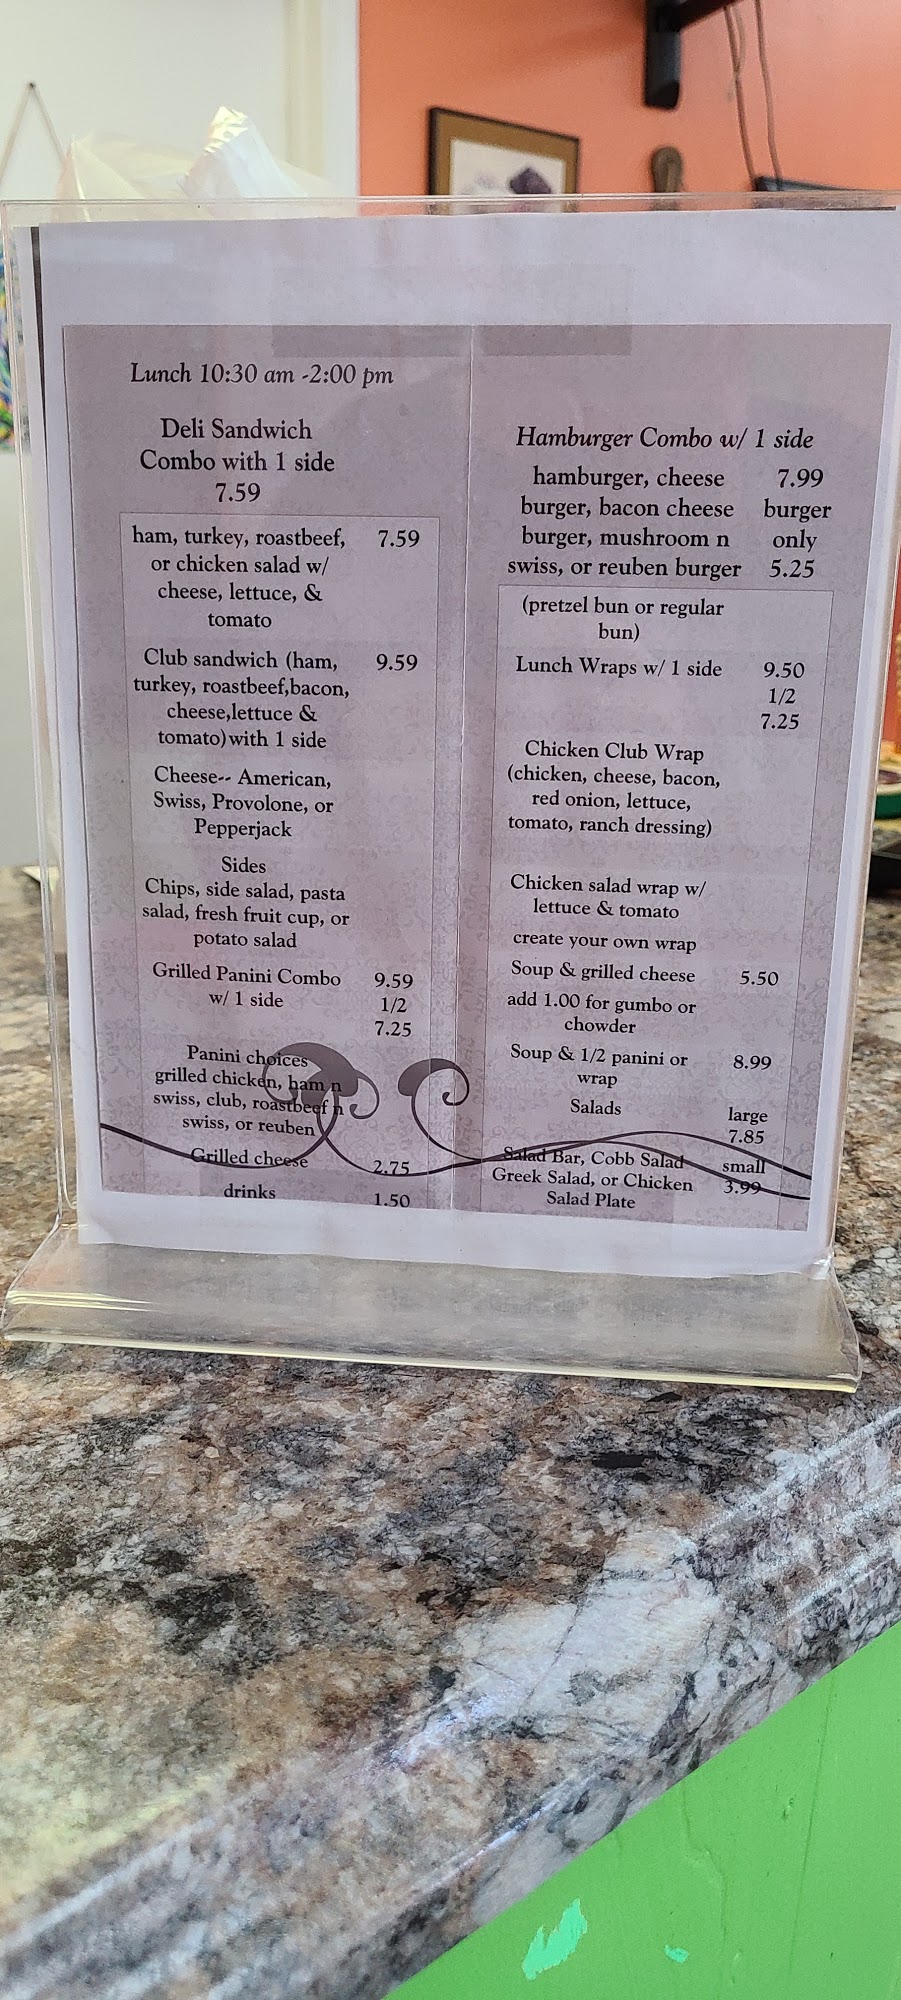 Lunch 10:30 am -2:00 pm
Deli Sandwich
Combo with 1 side
7.59
ham, turkey, roastbeef, 7.59
or chicken salad w/
cheese, lettuce, &
tomato
Club sandwich (ham, 9.59
turkey, roastbeef,bacon,
cheese,lettuce &
tomato)with 1 side
Cheese-- American,
Swiss, Provolone, or
Pepperjack
Sides
Chips, side salad, pasta
salad, fresh fruit cup, or
potato salad
Grilled Panini Combo 9.59
w/ 1 side 1/2
7.25
Panini choices
grilled chicken, ham n
swiss, club, roastbeef n
swiss, or reuben
Grilled cheese 2.75
drinks 1.50
Hamburger Combo w/ 1 side
hamburger, cheese 7.99
burger, bacon cheese burger
burger, mushroom n only
swiss, or reuben burger 5.25
(pretzel bun or regular
bun)
Lunch Wraps w/ 1 side 9.50
1/2
7.25
Chicken Club Wrap
(chicken, cheese, bacon,
red onion, lettuce,
tomato, ranch dressing)
Chicken salad wrap w/
lettuce & tomato
create your own wrap
Soup & grilled cheese 5.50
add 1.00 for gumbo or
chowder
Soup & 1/2 panini or 8.99
wrap
Salads large
7.85
Salad Bar, Cobb Salad small
Greek Salad, or Chicken 3.99
Salad Plate